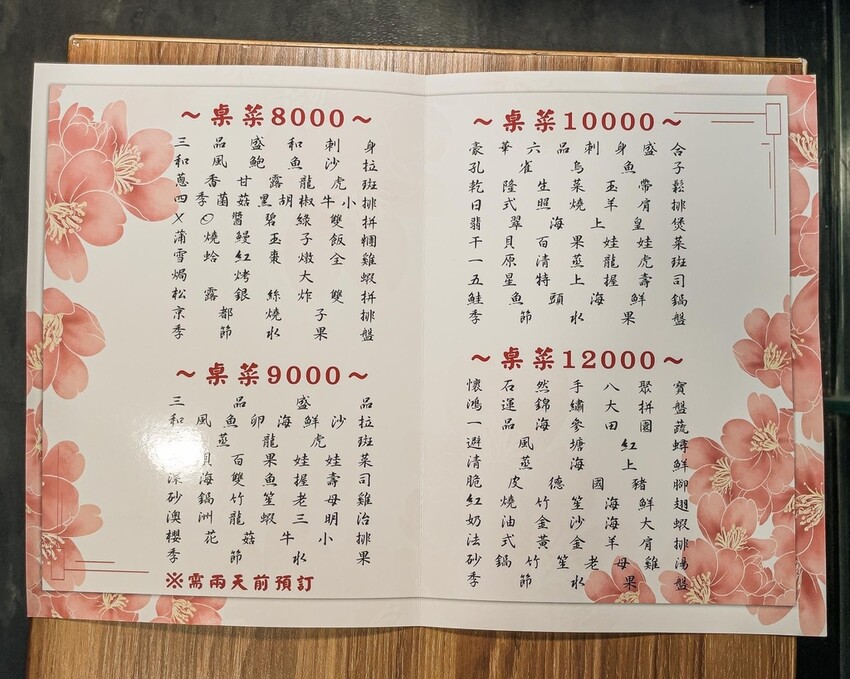 ～桌菜8000～
三品盛和刺身
和風鮑魚沙拉
蔥香甘露龍虎斑
四季菌菇黑胡椒牛小排
XO醬碧綠雙拼
蒲燒鰻玉子飯糰
雪蛤紅棗燉全雞
焗烤大蝦
松露銀絲炸雙拼
京都燒子排
季節水果盤
～桌菜9000～
三品盛品
和風魚卵海鮮沙拉
蒸龍虎斑
貝百果娃娃菜
深海雙魚握壽司
砂鍋竹笙老母雞
澳洲龍蝦三明治
櫻花菇牛小排
季節水果
※需兩天前預訂
～桌菜10000～
豪華六品刺身盛合
孔雀烏魚子
乾隆生菜玉帶鬆
日式照燒羊肩排
翡翠海上皇煲
干貝百果娃娃菜
一原清蒸龍虎斑
五星特上握壽司
鮭魚頭海鮮鍋
季節水果盤
～桌菜12000～
懷石然手八聚寶
鴻運錦繡大拼盤
一品海參田園蔬
避風塘紅蟳
清蒸海上鮮
脆皮德國豬腳
紅燒竹笙海鮮翅
奶油金沙海大蝦
法式黃金羊肩排
砂鍋竹笙老母雞湯
季節水果盤